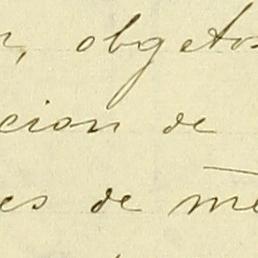 r, objetos
cion de
es de me